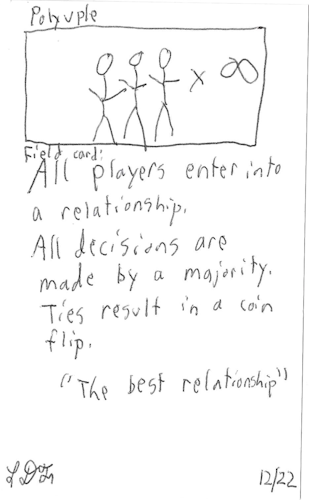 Polyuple
x ∞
Field card:
All players enter into
a relationship.
All decisions are
made by a majority.
Ties result in a coin
flip.
"The best relationship"
12/22